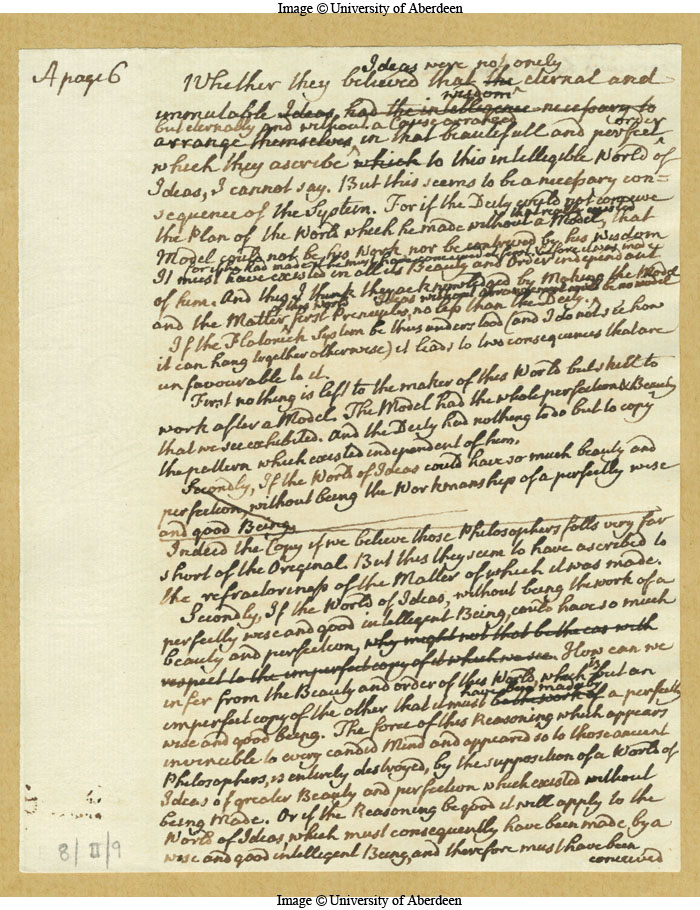 Image © University of Aberdeen
A page 6
Ideas were not only
Whether they believed that the eternal and
wisdom
immutable Ideas, had the intelligence necessary to
but eternally and without a Cause arranged order
arrange themselves, in that beautifull and perfect
which they ascribe which to this intelligible World of
Ideas, I cannot say. But this seems to be a necessary con=
sequence of the System. For if the Deity could not conceive
that really existed
the Plan of the World which he made without a Model, that
Model could not be his Work nor be contrived by his wisdom
for if he had made it he must have conceived it before it was made
It must have existed in all its Beauty and Order independant
of him. And this I think they acknowledged by Making the Model
of this World Ideas without
and the Matter first Principles, no less than the Deity.
If the Platonick System be thus understood (and I do not see how
it can hang together otherwise) it leads to two consequences that are
unfavourable to it.
First nothing is left to the maker of this World but skill to
work after a Model. The Model had the whole perfection & Beauty
that we see exhibited. And the Deity had nothing to do but to copy
the pattern which existed independent of him.
Secondly, If the World of Ideas could have so much beauty and
perfection, without being the Workmanship of a perfectly wise
and good Being,
Indeed the Copy if we believe those Philosophers falls very far
short of the Original. But this they seem to have ascribed to
the refractoriness of the Matter of which it was made.
Secondly, If the World of Ideas, without being the work of a
perfectly wise and good intelligent Being, could have so much
beauty and perfection, why might not that be the case with
respect to the imperfect copy of it which we see. How can we
infer from the Beauty and order of this World, which is but an
have been made by
imperfect copy of the other that it must be the work of a perfectly
wise and good being. The force of this Reasoning which appears
invincible to every candid Mind and appeared so to those ancient
Philosophers, is entirely destroyed, by the supposition of a World of
Ideas of greater Beauty and perfection which existed without
being Made. Or if the Reasoning be good it will apply to the
World of Ideas, which must consequently have been made by a
wise and good intelligent Being, and therefore must have been
conceived
8/II/9
Image © University of Aberdeen